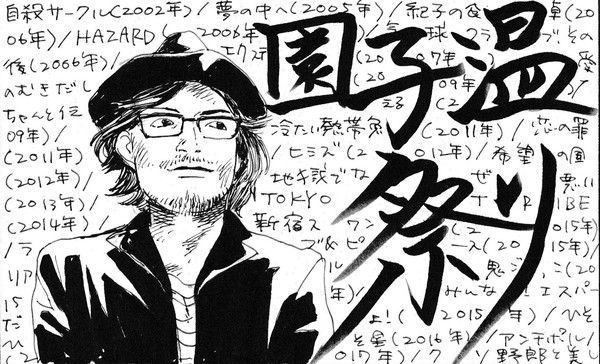 園子温
祭り
自殺サークル(2002年)/夢の中へ(2005年)/紀子の 卓(20
06年)/HAZARD( 2006年 球クラ ブその
後(2006年)/ エクステ (20 07年 愛
のむきだし (20 09年 /
ちゃんと伝 える (2
09年)/ 冷たい熱帯魚 (2011年)/恋の罪
(2011年)/ ヒミズ(2 012年)/希望の国
(2012年)/ 地獄でな ぜ 悪い
(2013年)/ TOKYO T R IBE
(2014年)/ 新宿ス ワン (2 015年)
/ラ &ピ ース(20 15年)/
リア ル 鬼ご こ(20
15 年)/ みんな!エスパー
だ よ!( 2015 年)/ひそ
ひ そ星(2016年)/アンチポル/
(2 017年)/ク 野郎と美し